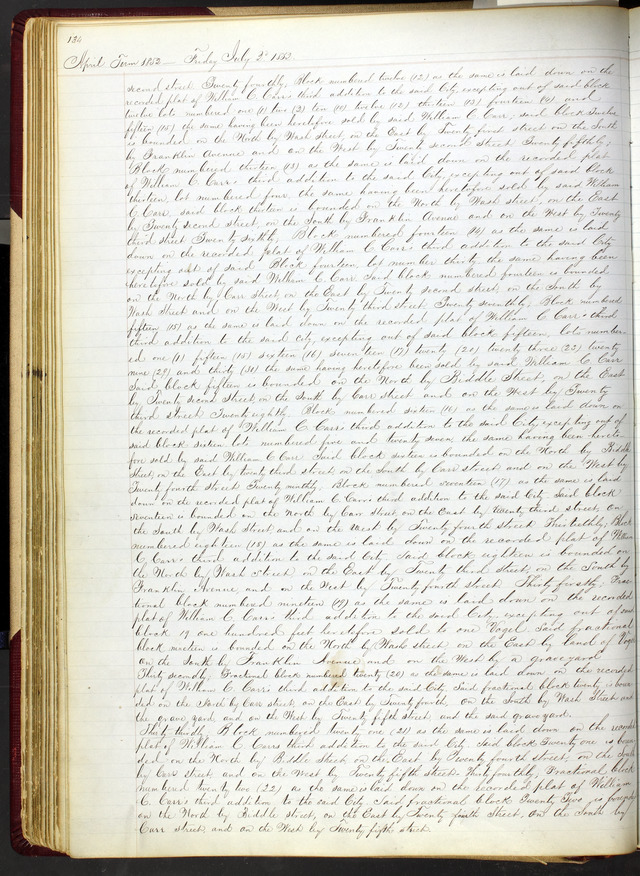 136
April Term 1852 — Friday July 2d 1852
second street Twenty fourthly, Block numbered twelve (12) as the same is laid down on the
recorded plat of William C. Carr's third addition to the said City, excepting out of said block
twelve lots numbered one (1) two (2) ten (10) twelve (12) thirteen (13) fourteen (14) and
fifteen (15) the same having been heretofore sold by said William C. Carr; said block Twelve
is bounded on the North by Wash street, on the East by Twenty first street on the South
by Franklin Avenue and on the West by Twenty second street Twenty fifthly;
Block numbered thirteen (13) as the same is laid down on the recorded plat
of William C. Carr's third addition to the said City, excepting out of said block
thirteen, lot numbered four the same having been heretofore sold by said William
C. Carr, said block thirteen is bounded on the North by Wash street, on the East
by Twenty second street, on the South by Franklin Avenue and on the West by Twenty
third street Twenty sixthly, Block numbered fourteen (14) as the same is laid
down on the recorded plat of William C. Carr's third addition to the said City
excepting out of said Block fourteen, lot number thirty the same having been
heretofore sold by said William C. Carr Said block numbered fourteen is bounded
on the North by Carr Street on the East by Twenty second street on the South by
Wash Street and on the West by Twenty third street Twenty seventhly, Block numbered
fifteen (15) as the same is laid down on the recorded plat of William C. Carr's third
third addition to the said city, excepting out of said block fifteen, lots number-
ed one (1) fifteen (15) sixteen (16) seventeen (17) twenty (20) twenty three (23) twenty
nine (29) and thirty (30) the same having heretofore been sold by said William C. Carr
Said block fifteen is bounded on the North by Biddle Street, on the East
by Twenty second Street, on the South by Carr street and on the West by Twenty
third street Twenty eightly Block numbered sixteen (16) as the same is laid down on
the recorded plat of William C. Carr's third addition to the said City excepting out of
said block sixteen lots numbered five and twenty seven the same having been hereto-
fore sold by said William C Carr Said block sixteen is bounded on the North by Biddle
Street, on the East by twenty third street on the South by Carr street and on the West by
Twenty fourth street Twenty ninthly, Block numbered seventeen (17) as the same is laid
down on the recorded plat of William C. Carr's third addition to the said City Said block
seventeen is bounded on the North by Carr Street, on the East by Twenty third street, on
the South by Wash Street and on the West by Twenty fourth street Thirtiethly, Block
numbered eighteen (18) as the same is laid down on the recorded plat of William
C. Carr's third addition to the said City Said block eighteen is bounded on
the North by Wash Street on the East by Twenty third Street, on the South by
Franklin Avenue and on the West by Twenty fourth street Thirty firstly, Frac-
tional block numbered nineteen (19) as the same is laid down on the recorded
plat of William C. Carr's third addition to the said City excepting out of said
block 19 one hundred feet heretofore sold to one Vogel Said fractional
block nineteen is bounded on the North by Wash street, on the East by land of Vogel
on the South by Franklin Avenue and on the West by a graveyard
Thirty secondly, Fractional block numbered twenty (20) as the same is laid down on the recorded
plat of William C. Carr's third addition to the said City. Said fractional block twenty is boun-
ded on the North by Carr street, on the East by Twenty fourth, on the South by Wash Street and
the grave yard, and on the West by Twenty fifth street and the said graveyard.
Thirty thirdly, Block numbered twenty one (21) as the same is laid down on the recorded
plat of William C. Carr's third addition to the said City Said block Twenty one is boun-
ded on the North by Biddle Street, on the East by Twenty fourth street, on the South
by Carr street and on the West by Twenty fifth street Thirty fourthly, Fractional block
numbered Twenty two (22) as the same is laid down on the recorded plat of William
C. Carr's third addition to the said City. Said fractional block Twenty Two, is bounded
on the North by Biddle street, on the East by Twenty fourth Street, on the South by
Carr street, and on the West by Twenty fifth street.